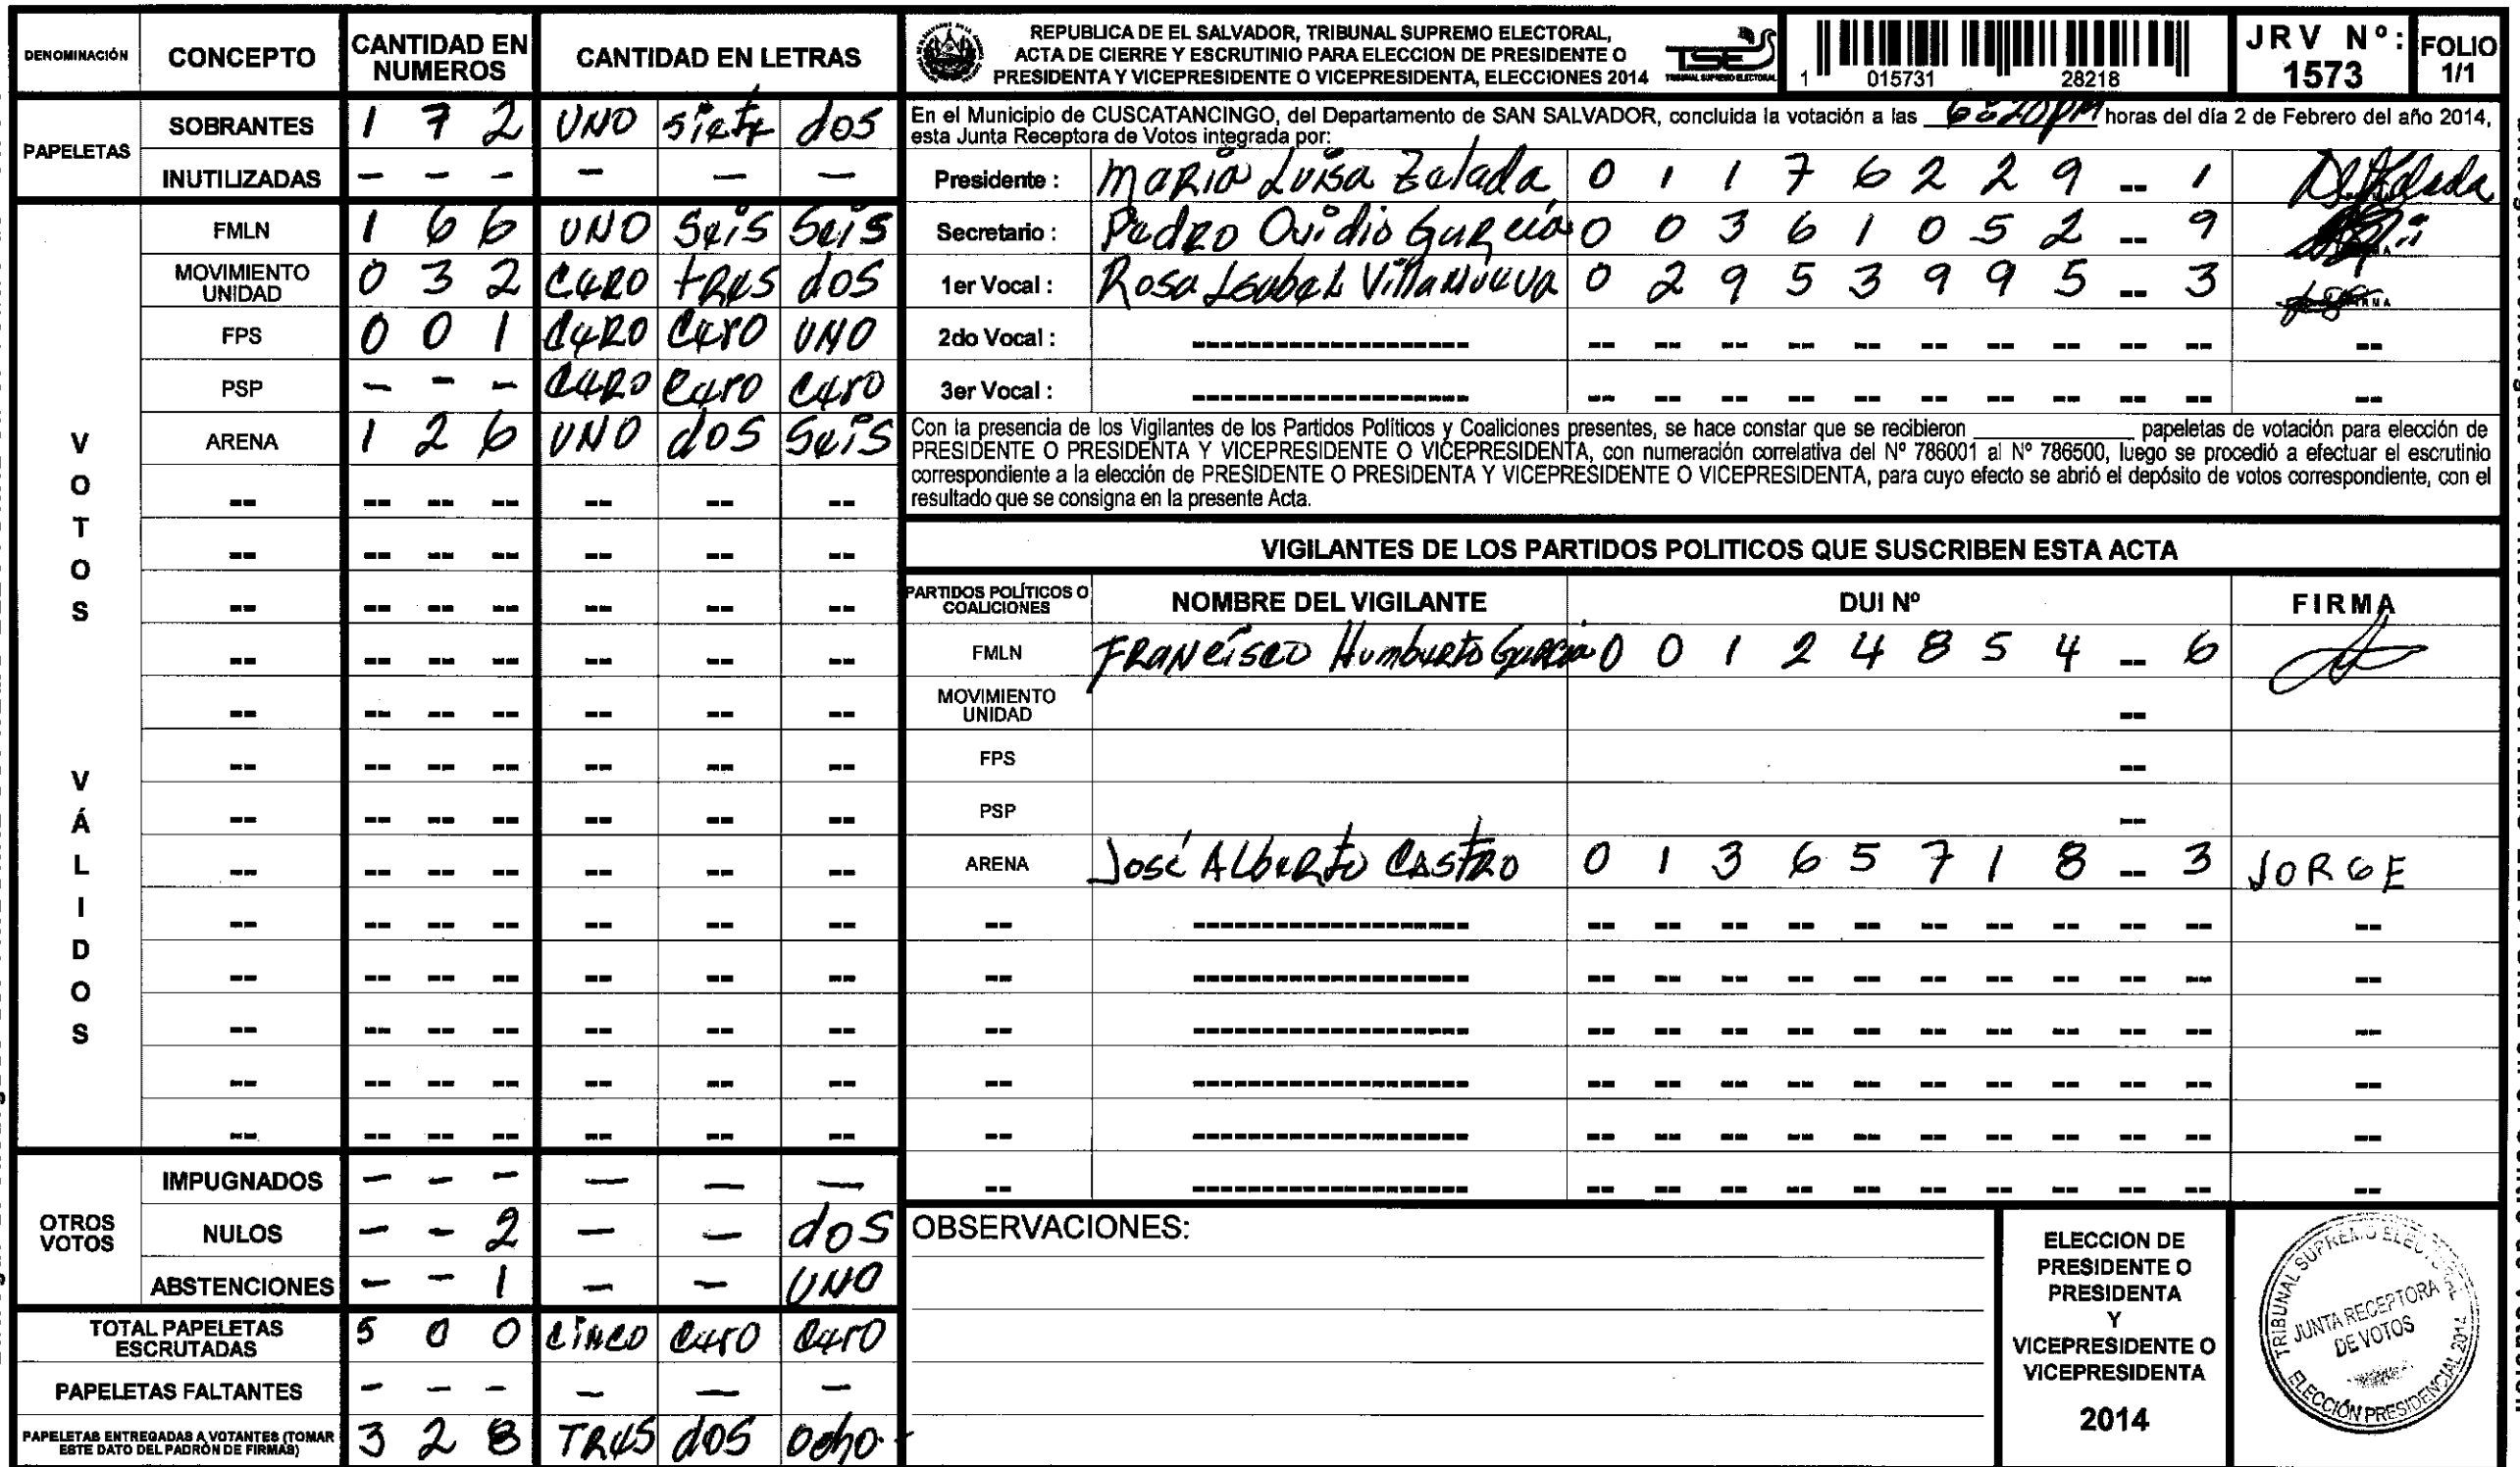 DENOMINACIÓN CONCEPTO CANTIDAD EN NUMEROS CANTIDAD EN LETRAS
PAPELETAS
SOBRANTES 1 7 2 UNO siete dos
INUTILIZADAS - - - - - -
VOTOS VÁLIDOS
FMLN 1 6 6 UNO Seis Seis
MOVIMIENTO UNIDAD 0 3 2 cero tres dos
FPS 0 0 1 cero cero UNO
PSP - - - cero cero cero
ARENA 1 2 6 UNO dos Seis
-- -- -- -- -- -- --
-- -- -- -- -- -- --
-- -- -- -- -- -- --
-- -- -- -- -- -- --
-- -- -- -- -- -- --
-- -- -- -- -- -- --
-- -- -- -- -- -- --
-- -- -- -- -- -- --
-- -- -- -- -- -- --
-- -- -- -- -- -- --
-- -- -- -- -- -- --
-- -- -- -- -- -- --
-- -- -- -- -- -- --
OTROS VOTOS
IMPUGNADOS - - - - - -
NULOS - - 2 - - dos
ABSTENCIONES - - 1 - - UNO
TOTAL PAPELETAS ESCRUTADAS 5 0 0 cinco cero cero
PAPELETAS FALTANTES - - - - - -
PAPELETAS ENTREGADAS A VOTANTES (TOMAR ESTE DATO DEL PADRÓN DE FIRMAS) 3 2 8 TRES dos ocho
REPUBLICA DE EL SALVADOR, TRIBUNAL SUPREMO ELECTORAL,
ACTA DE CIERRE Y ESCRUTINIO PARA ELECCION DE PRESIDENTE O
PRESIDENTA Y VICEPRESIDENTE O VICEPRESIDENTA, ELECCIONES 2014
TSE
TRIBUNAL SUPREMO ELECTORAL
1 015731 28218
JRV Nº: 1573
FOLIO 1/1
En el Municipio de CUSCATANCINGO, del Departamento de SAN SALVADOR, concluida la votación a las 6:20 PM horas del día 2 de Febrero del año 2014,
esta Junta Receptora de Votos integrada por:
Presidente : Maria Luisa Zelada 0 1 1 7 6 2 2 9 -- 1
Secretario : Pedro Ovidio García 0 0 3 6 1 0 5 2 -- 9
1er Vocal : Rosa Isabel Villanueva 0 2 9 5 3 9 9 5 -- 3
2do Vocal : ------------------- -- -- -- -- -- -- -- -- -- -- --
3er Vocal : ------------------- -- -- -- -- -- -- -- -- -- -- --
Con la presencia de los Vigilantes de los Partidos Políticos y Coaliciones presentes, se hace constar que se recibieron __________ papeletas de votación para elección de
PRESIDENTE O PRESIDENTA Y VICEPRESIDENTE O VICEPRESIDENTA, con numeración correlativa del Nº 786001 al Nº 786500, luego se procedió a efectuar el escrutinio
correspondiente a la elección de PRESIDENTE O PRESIDENTA Y VICEPRESIDENTE O VICEPRESIDENTA, para cuyo efecto se abrió el depósito de votos correspondiente, con el
resultado que se consigna en la presente Acta.
VIGILANTES DE LOS PARTIDOS POLITICOS QUE SUSCRIBEN ESTA ACTA
PARTIDOS POLÍTICOS O COALICIONES NOMBRE DEL VIGILANTE DUI Nº FIRMA
FMLN Francisco Humberto Garcia 0 0 1 2 4 8 5 4 -- 6
MOVIMIENTO UNIDAD --
FPS --
PSP --
ARENA José Alberto Castro 0 1 3 6 5 7 1 8 -- 3 JORGE
-- ------------------- -- -- -- -- -- -- -- -- -- -- --
-- ------------------- -- -- -- -- -- -- -- -- -- -- --
-- ------------------- -- -- -- -- -- -- -- -- -- -- --
-- ------------------- -- -- -- -- -- -- -- -- -- -- --
-- ------------------- -- -- -- -- -- -- -- -- -- -- --
-- ------------------- -- -- -- -- -- -- -- -- -- -- --
OBSERVACIONES:
ELECCION DE
PRESIDENTE O
PRESIDENTA
Y
VICEPRESIDENTE O
VICEPRESIDENTA
2014
TRIBUNAL SUPREMO ELECTORAL
JUNTA RECEPTORA
DE VOTOS
ELECCIÓN PRESIDENCIAL 2014